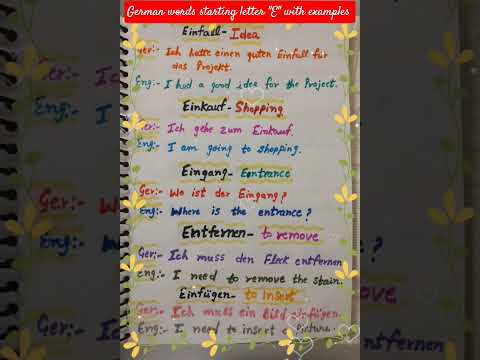 German words starting letter "E" with examples
Einfall- Idea
Ger:- Ich hatte einen guten Einfall für
das Projekt.
Eng:- I had a good idea for the Project.
Einkauf- Shopping
Ger:- Ich gehe zum Einkauf.
Eng:- I am going to shopping.
Eingang- Eentrance
Ger:- Wo ist der Eingang?
Eng:- Where is the entrance?
Entfernen- to remove
Ger:- Ich muss den Fleck entfernen
Eng:- I need to remove the stain.
Einfügen- to insert
Ger:- Ich muss ein Bild einfügen.
Eng:- I need to insert a Picture.